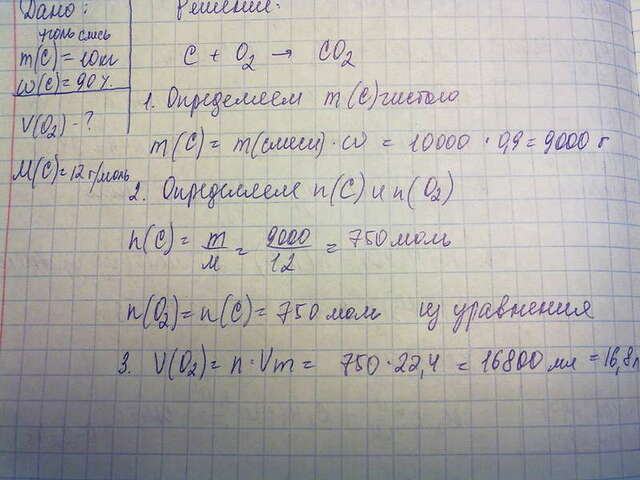 Дано:
уголь смесь
m(C) = 10 кг
ω(C) = 90%.
V(O₂) - ?
M(C) = 12 г/моль
Решение:
C + O₂ → CO₂
1. Определяем m(C) чистого
m(C) = m(смеси) · ω = 10000 · 0,9 = 9000 г
2. Определяем n(C) и n(O₂)
n(C) = m/M = 9000/12 = 750 моль
n(O₂) = n(C) = 750 моль из уравнения
3. V(O₂) = n · Vm = 750 · 22,4 = 16800 мл = 16,8 л